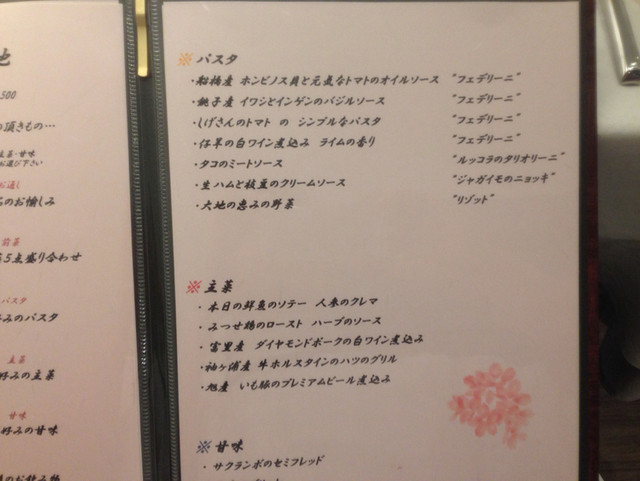 500
の頂きもの…
主菜・甘味
お選び下さい
お通し
のお愉しみ
前菜
5点盛り合わせ
パスタ
好みのパスタ
主菜
好みの主菜
甘味
好みの甘味
※ パスタ
・船橋産 ホンビノス貝と元気なトマトのオイルソース "フェデリーニ"
・銚子産 イワシとインゲンのバジルソース "フェデリーニ"
・しげさんのトマト の シンプルなパスタ "フェデリーニ"
・仔羊の白ワイン煮込み ライムの香り "フェデリーニ"
・タコのミートソース "ルッコラのタリオリーニ"
・生ハムと枝豆のクリームソース "ジャガイモのニョッキ"
・大地の恵みの野菜 "リゾット"
※ 主菜
・ 本日の鮮魚のソテー 人参のクレマ
・ みつせ鶏のロースト ハーブのソース
・ 富里産 ダイヤモンドポークの白ワイン煮込み
・袖ヶ浦産 牛ホルスタインのハツのグリル
・旭産 いも豚のプレミアムビール煮込み
※ 甘味
・ サクランボのセミフレッド